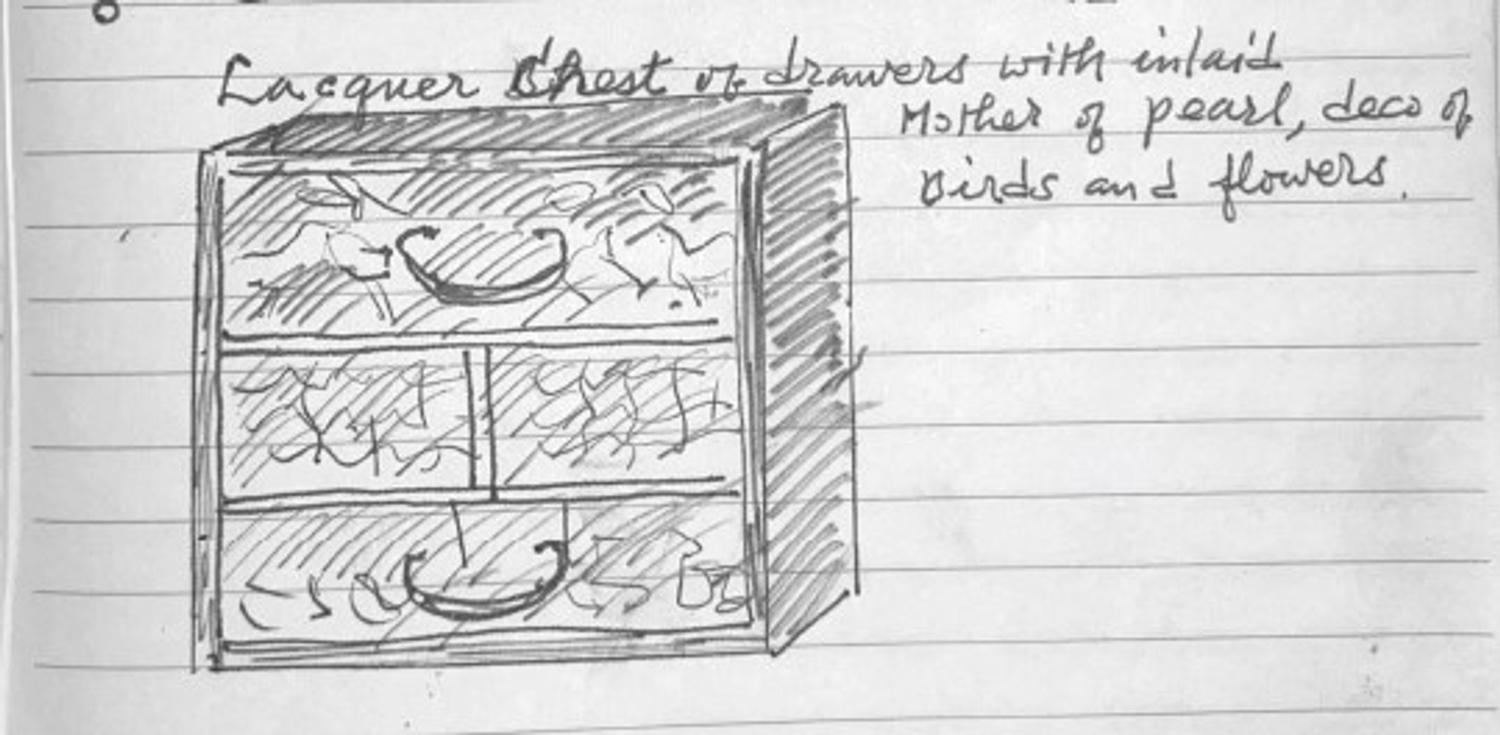 Lacquer Chest of drawers with inlaid
Mother of pearl, deco of
birds and flowers.